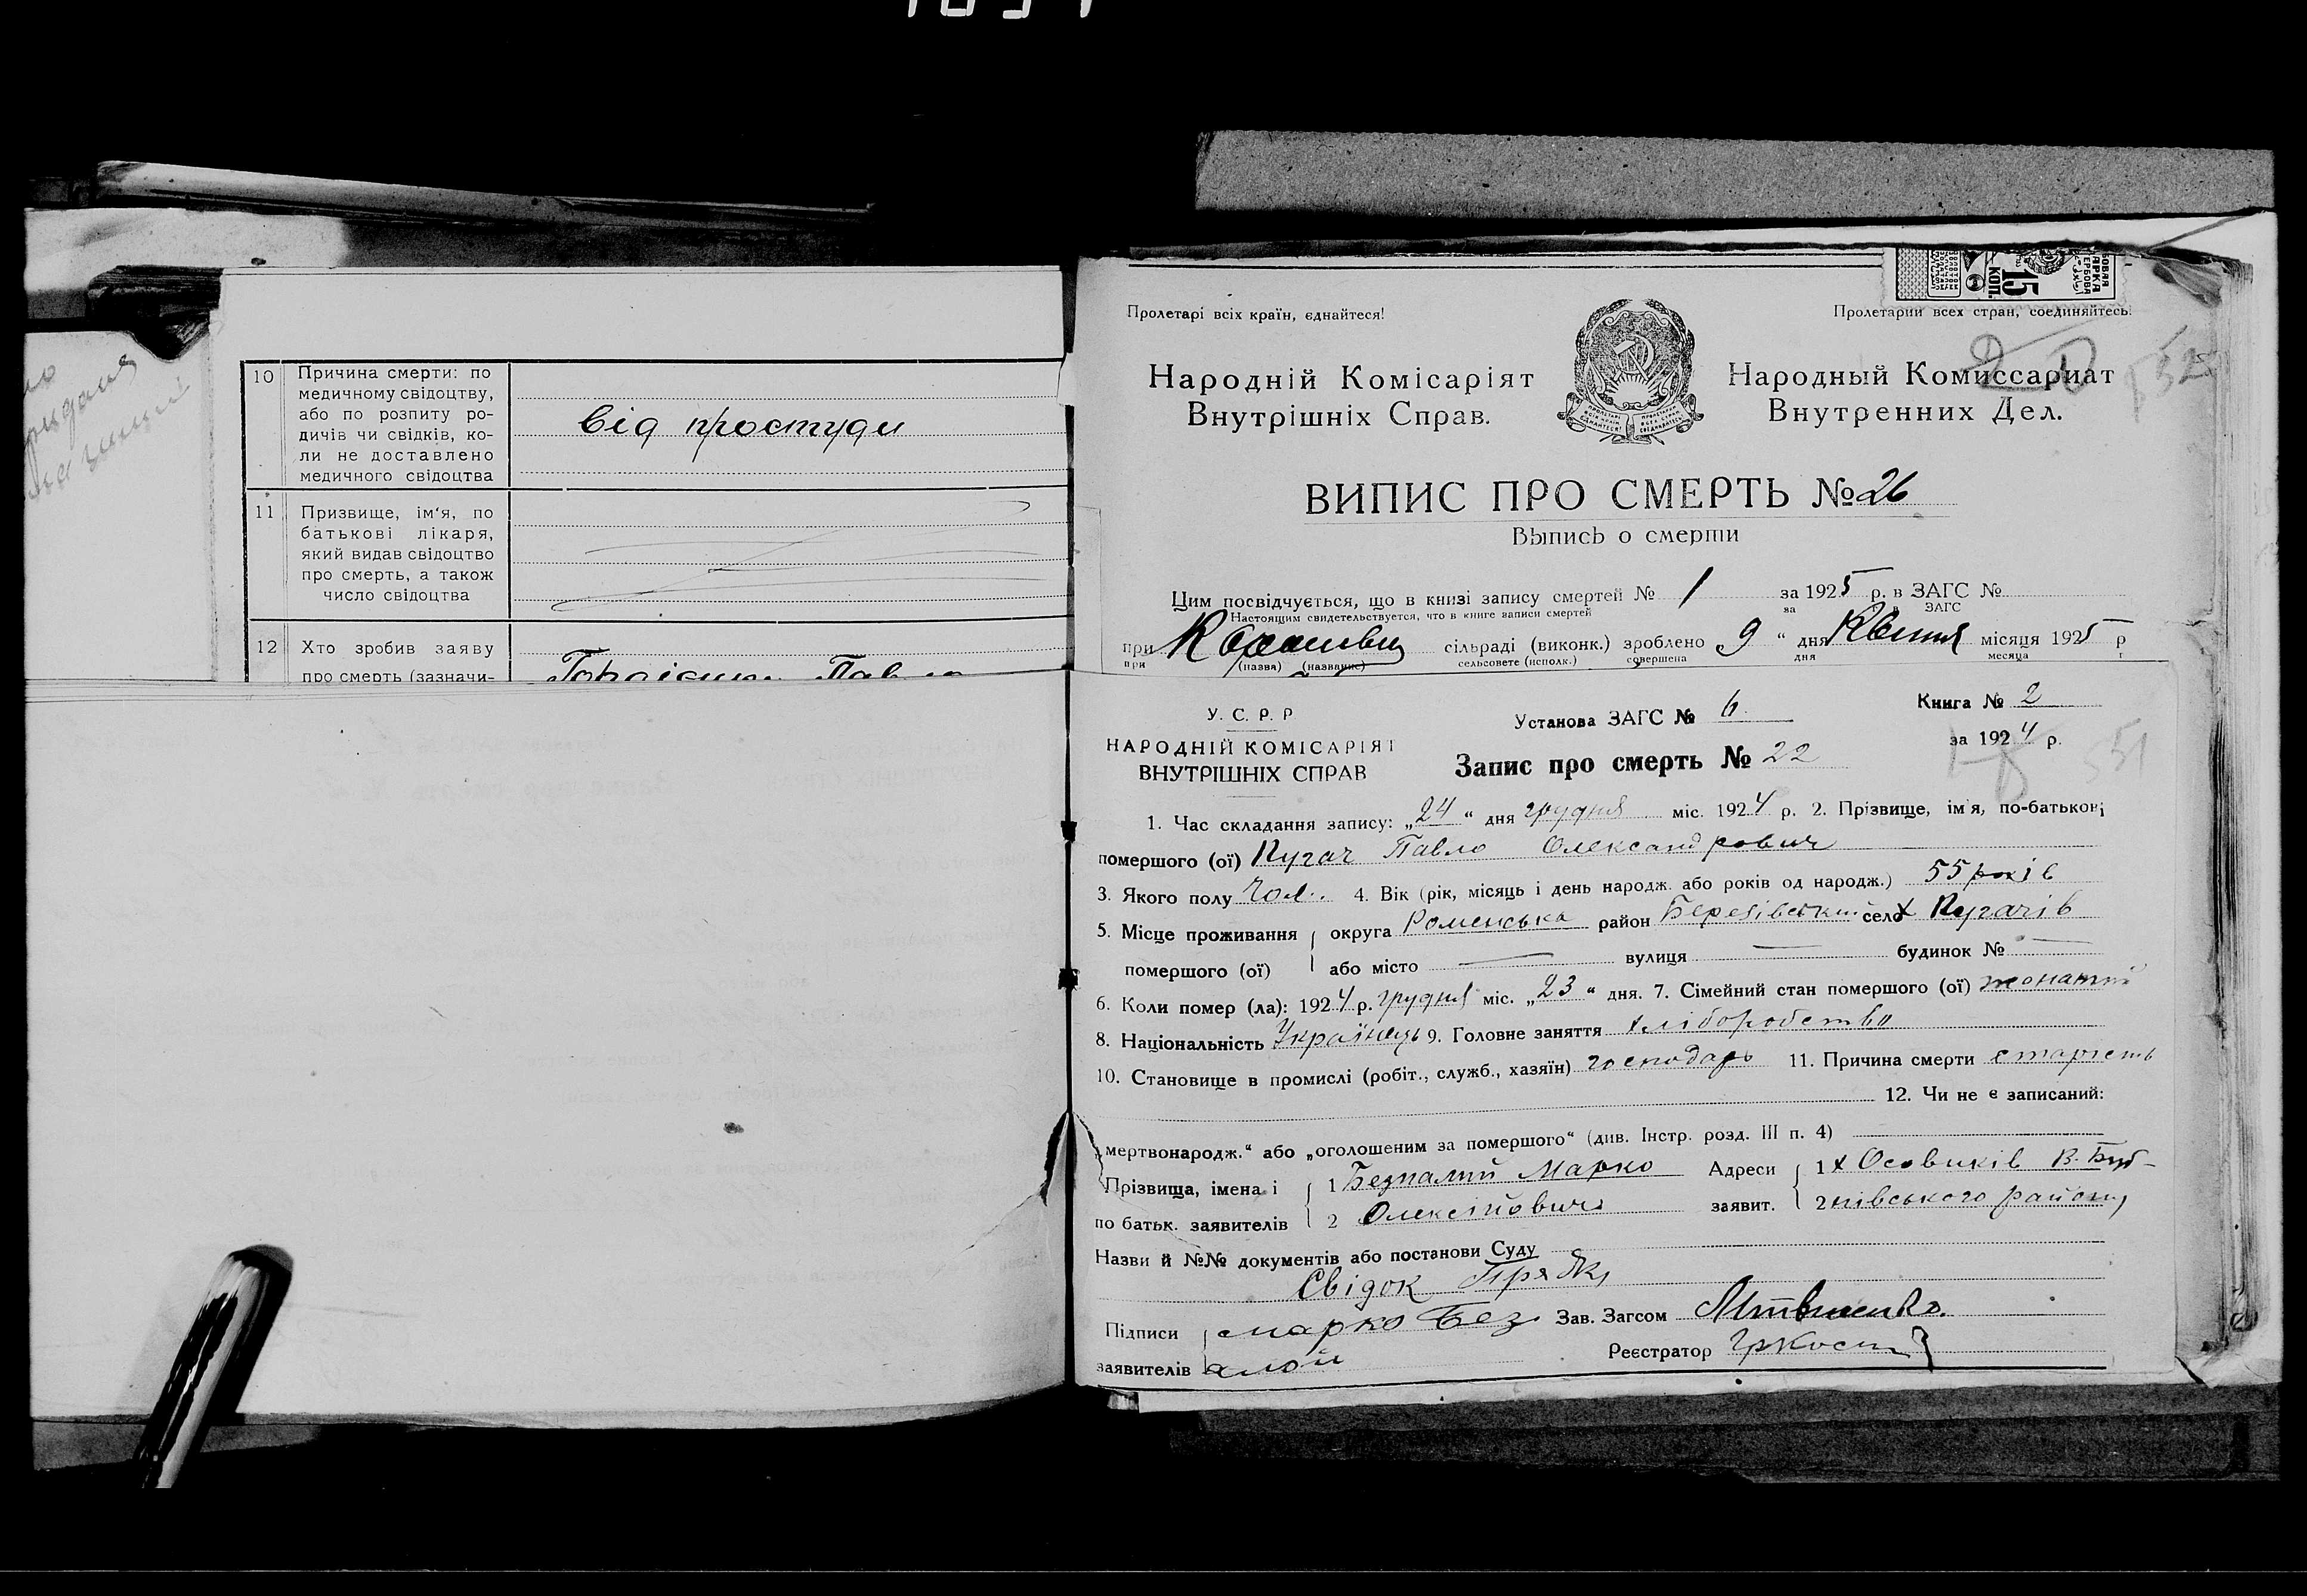 10
Причина смерти: по
медичному свідоцтву,
або по розпиту ро-
дичів чи свідків, ко-
ли не доставлено
медичного свідоцтва
від простуди
11
Призвище, ім‘я, по
батькові лікаря,
який видав свідоцтво
про смерть, а також
число свідоцтва
12
Хто зробив заяву
про смерть (зазначи-
Павло
15
КОП.
Пролетарі всіх країн, єднайтеся!
Пролетарии всех стран, соединяйтесь!
Народній Комісаріят
Внутрішніх Справ.
Народный Комиссариат
Внутренних Дел.
52
ВИПИС ПРО СМЕРТЬ № 26
Выпись о смерти
Цим посвідчується, що в книзі запису смертей № 1 за 1925 р. в ЗАГС №
Настоящим свидетельствуется, что в книге записи смертей за в ЗАГС
при сільраді (виконк.) зроблено „9“ дня Квітня місяця 1925 р
при (назва) (название) сельсовете (исполк.) совершена дня месяца г
У. С. Р. Р
НАРОДНІЙ КОМІСАРІЯТ
ВНУТРІШНІХ СПРАВ
Установа ЗАГС № 6
Книга № 2
за 1924 р.
Запис про смерть № 22
551
1. Час складання запису: „24“ дня грудня міс. 1924 р. 2. Прізвище, ім'я, по-батькові
помершого (ої) Пугач Павло Олександрович
3. Якого полу чол. 4. Вік (рік, місяць і день народж. або років од народж.) 55 років
5. Місце проживання округа Роменська район Березівський село х Пугачів
помершого (ої) або місто — вулиця — будинок № —
6. Коли помер (ла): 1924 р. грудня міс. „23“ дня. 7. Сімейний стан помершого (ої) жонатий
8. Національність Українець 9. Головне заняття хліборобство
10. Становище в промислі (робіт., служб., хазяїн) господарь 11. Причина смерти старість
12. Чи не є записаний:
„мертвонародж.“ або „оголошеним за помершого“ (див. Інстр. розд. III п. 4)
Прізвища, імена і 1 Безпалий Марко Адреси 1 х Осовиків В. Буб-
по батьк. заявителів 2 Олексійович заявит. 2 нівського району
Назви й №№ документів або постанови Суду
Свідок
Підписи марко Без Зав. Загсом Литвиненко.
заявителів алой Реєстратор